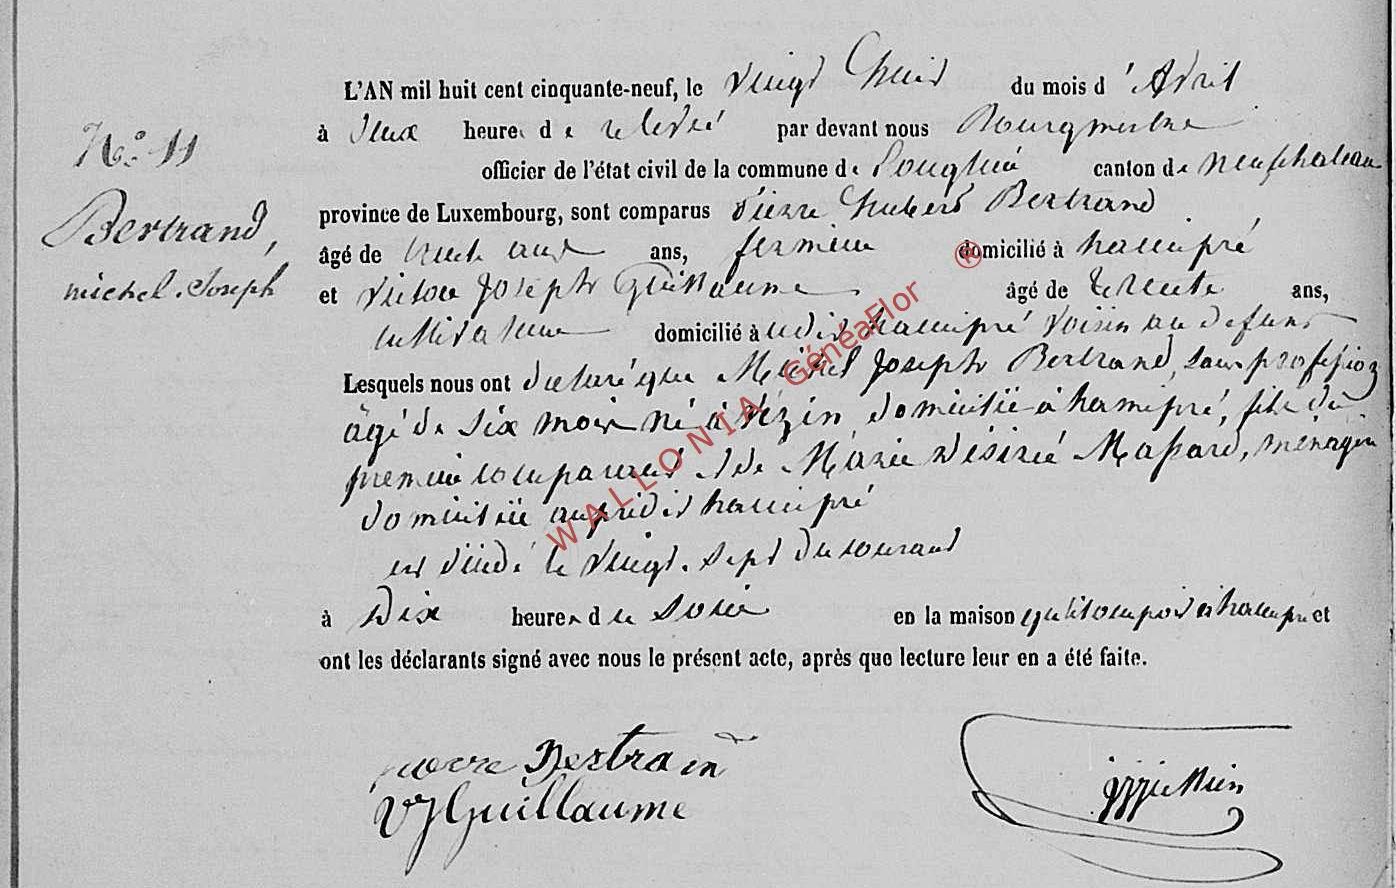 L'AN mil huit cent cinquante-neuf, le vingt huit du mois d'Avril
à deux heures de relevé par devant nous Bourgmestre
officier de l'état civil de la commune de Longlier canton de neufchateau
N° 11
Bertrand,
michel. Joseph
province de Luxembourg, sont comparus Pierre hubert Bertrand
âgé de trente ans, fermier domicilié à hamipré
et Victor Joseph Guillaume âgé de trente ans,
cultivateur domicilié à udit hamipré voisin au defunt
Lesquels nous ont declaré que Michel Joseph Bertrand, sans profession
âgé de six mois né à domicilié à hamipré, fils du
premier comparant et de Marie Désirée Massard, ménagère
domiciliée au prédit hamipré
est décédé le vingt-sept du courant
à dix heures du soir en la maison qu'il occupoit à hamipré et
ont les déclarants signé avec nous le présent acte, après que lecture leur en a été faite.
pierre Bertrand
VJ Guillaume
WALLONIA GénéaFlor ®